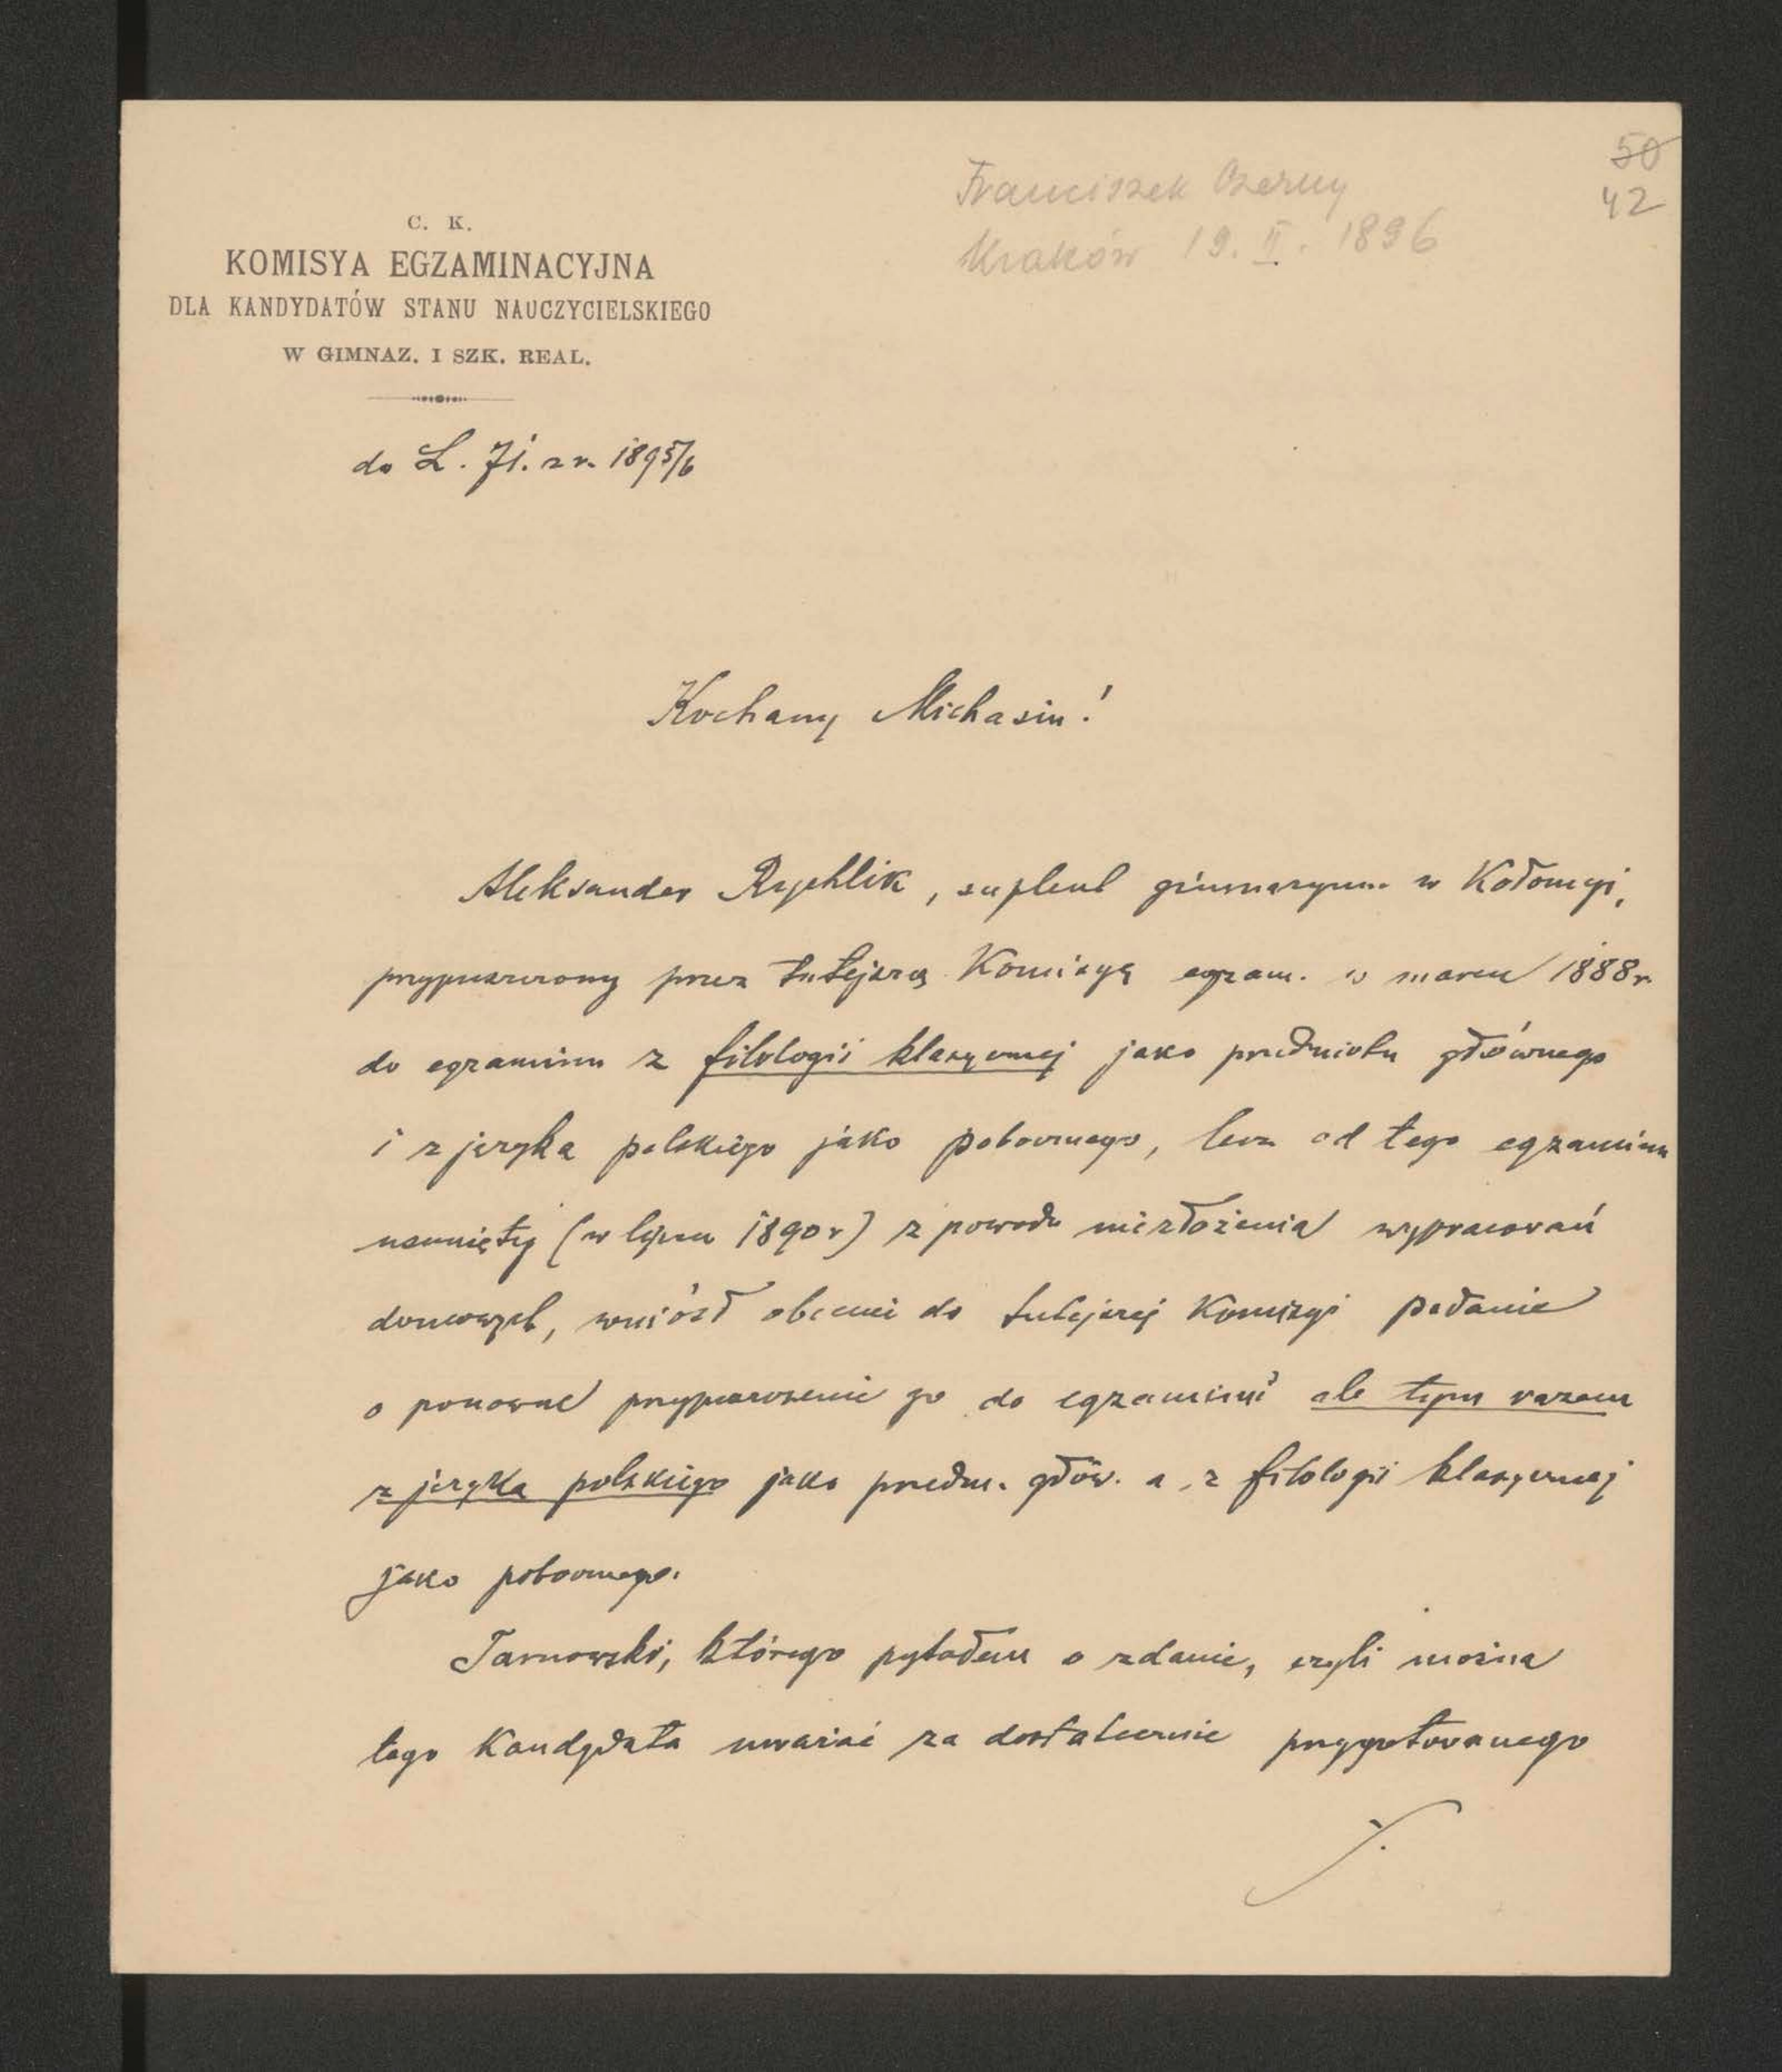 50
42
Franciszek Czerny
Kraków 19. II. 1896
C. K.
KOMISYA EGZAMINACYJNA
DLA KANDYDATÓW STANU NAUCZYCIELSKIEGO
W GIMNAZ. I SZK. REAL.
do L. 71. z r. 1895/6
Kochany Michasiu!
Aleksander Rychlik, suplent gimnazyum w Kołomyi,
przypuszczony przez tutejszą Komisyę egzam. w marcu 1888 r.
do egzaminu z filologii klasycznej jako przedmiotu głównego
i z języka polskiego jako pobocznego, lecz od tego egzaminu
usunięty (w lipcu 1890 r) z powodu niezłożenia wypracowań
domowych, wniósł obecnie do tutejszej Komisyi podanie
o ponowne przypuszczenie go do egzaminu ale tym razem
z języka polskiego jako przedm. głów. a z filologii klasycznej
jako pobocznego.
Tarnowski, którego pytałem o zdanie, czyli można
tego kandydata uważać za dostatecznie przygotowanego